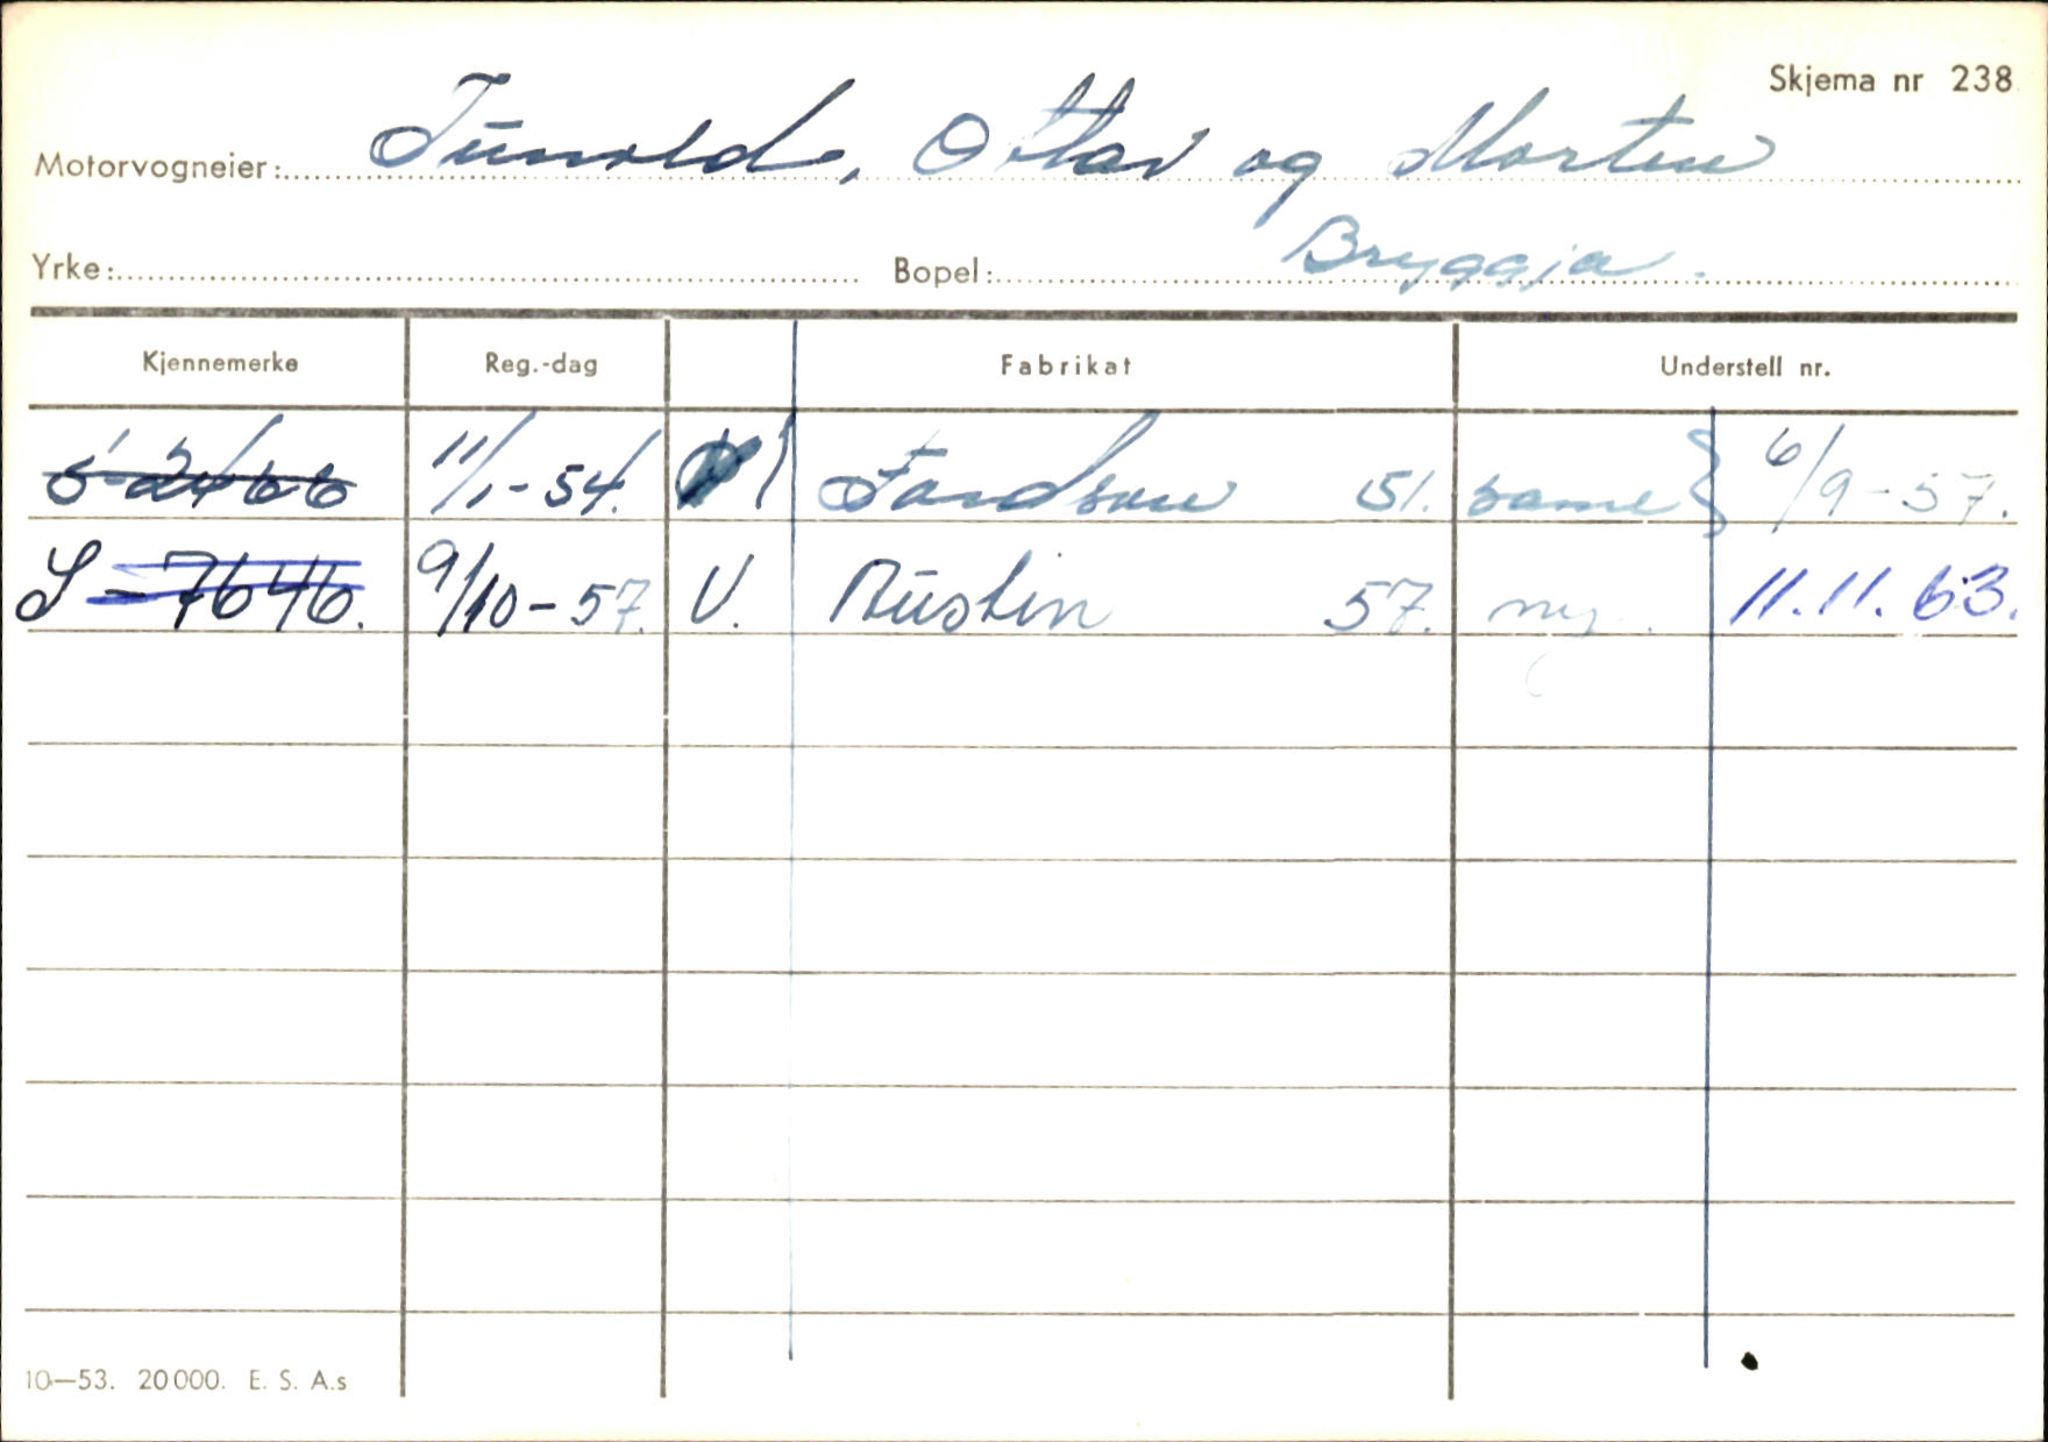 Skjema nr 238
Motorvogneier: Tunold, Ottar og Morten
Yrke: Bopel: Bryggja.
Kjennemerke Reg.-dag Fabrikat Understell nr.
S-2466 11/1-54. Fordson 51. same } 6/9-57.
S-7646. 9/10-57. V. Austin 57. ny. 11.11.63.
10-53. 20000. E. S. A.s